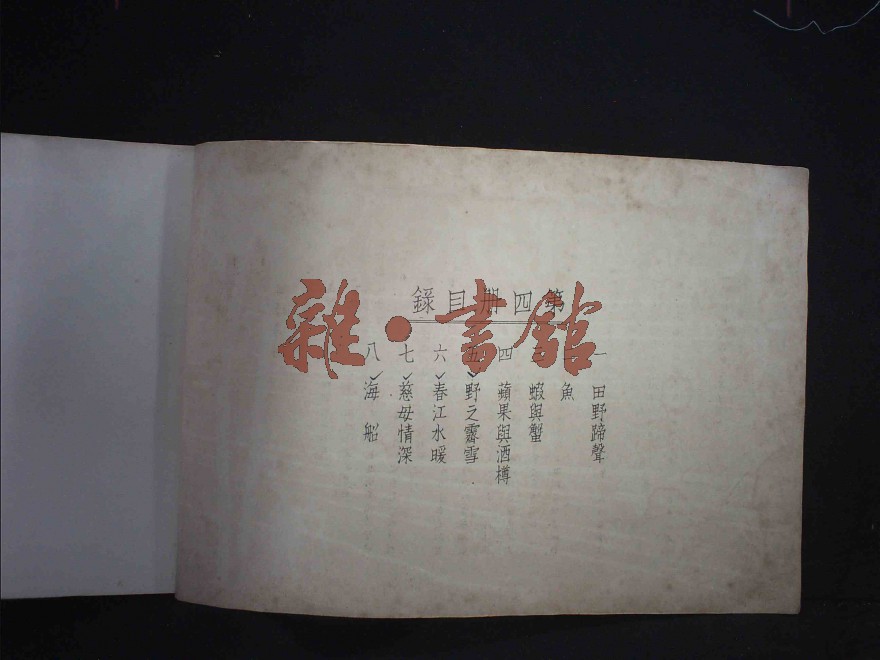 第四冊目錄
一 田野蹄聲
二 魚
三 蝦與蟹
四 蘋果與酒樽
五 野之霽雪
六 春江水暖
七 慈母情深
八 海船
雜·書館